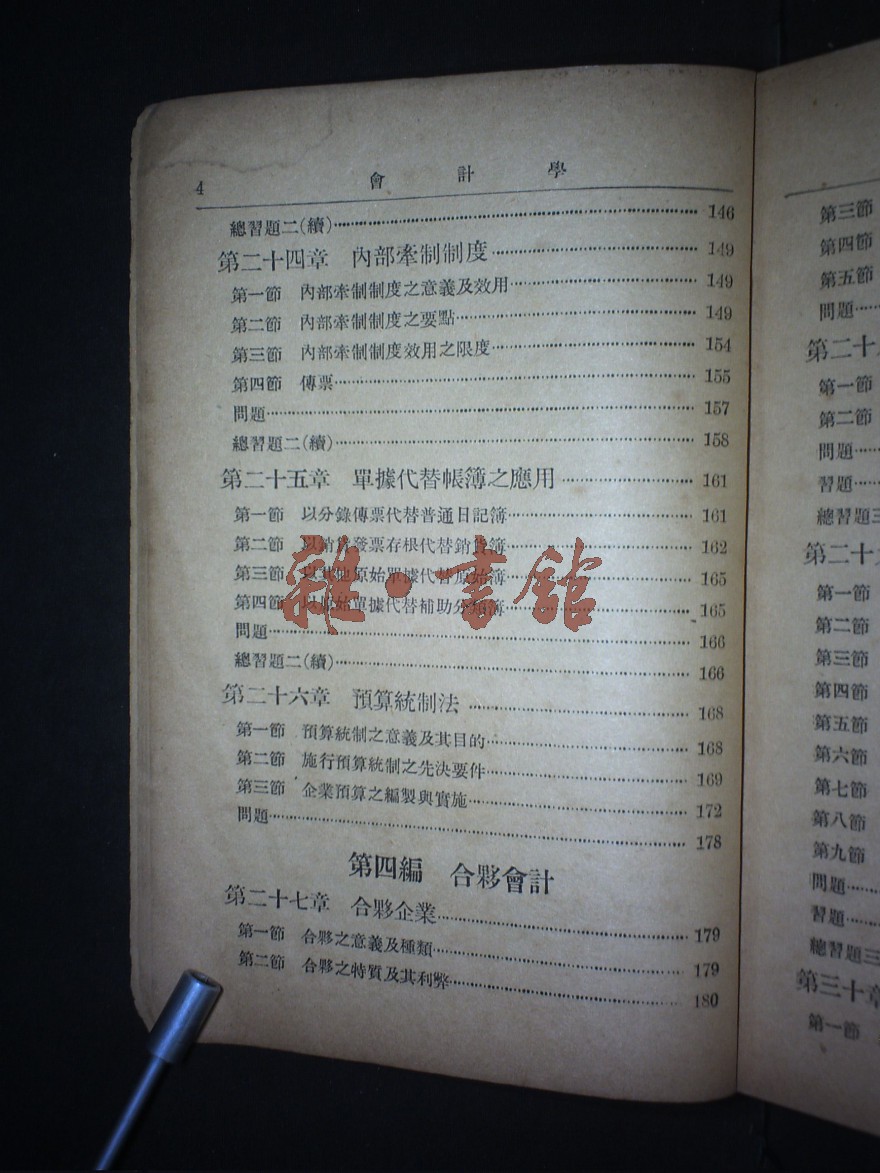 4 會計學
總習題二(續) 146
第二十四章 內部牽制制度 149
第一節 內部牽制制度之意義及效用 149
第二節 內部牽制制度之要點 149
第三節 內部牽制制度效用之限度 154
第四節 傳票 155
問題 157
總習題二(續) 158
第二十五章 單據代替帳簿之應用 161
第一節 以分錄傳票代替普通日記簿 161
第二節 以銷貨發票存根代替銷貨簿 162
第三節 以其他原始單據代替原始簿 165
第四節 以原始單據代替補助分類簿 165
雜·書館
問題 166
總習題二(續) 166
第二十六章 預算統制法 168
第一節 預算統制之意義及其目的 168
第二節 施行預算統制之先決要件 169
第三節 企業預算之編製與實施 172
問題 178
第四編 合夥會計
第二十七章 合夥企業 179
第一節 合夥之意義及種類 179
第二節 合夥之特質及其利弊 180
第三節
第四節
第五節
問題
第二十
第一節
第二節
問題
習題
總習題三
第二十
第一節
第二節
第三節
第四節
第五節
第六節
第七節
第八節
第九節
問題
習題
總習題三
第三十章
第一節